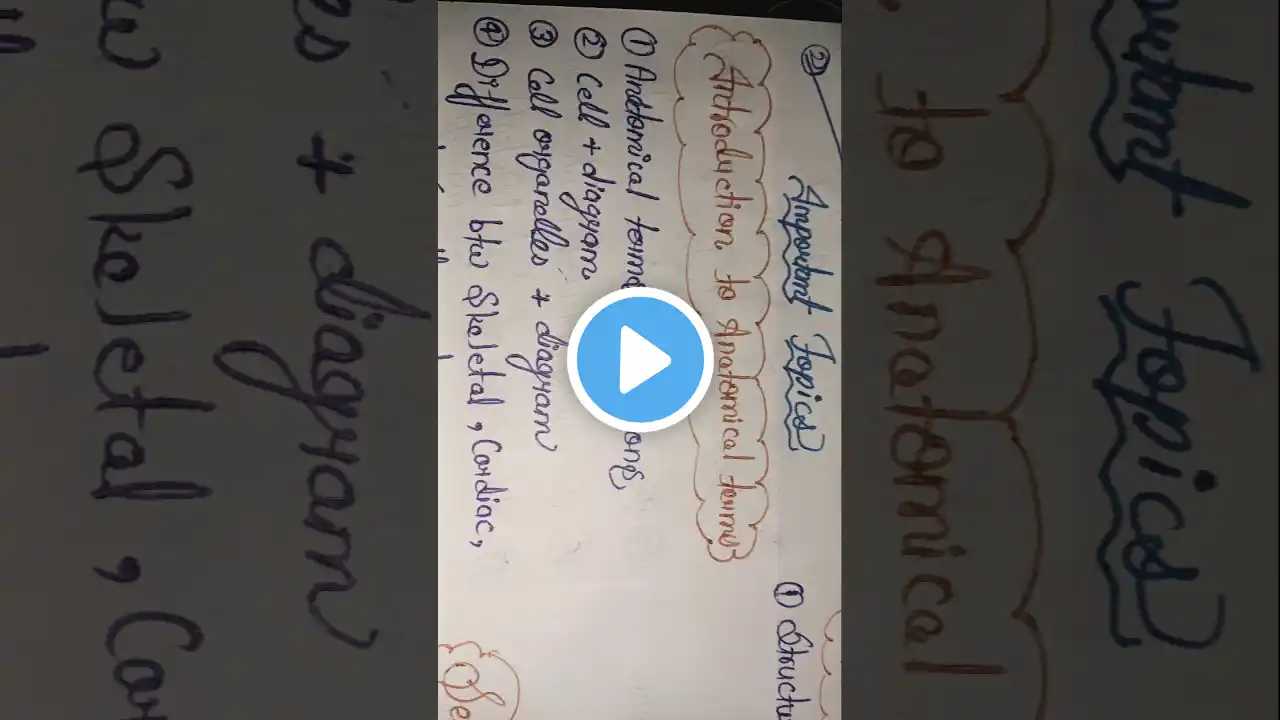 ②
Important Topics
Introduction to Anatomical terms
① Anatomical
② Cell + diagram
③ Cell organelles + diagram
④ Difference btw Skeletal, Cardiac,
①